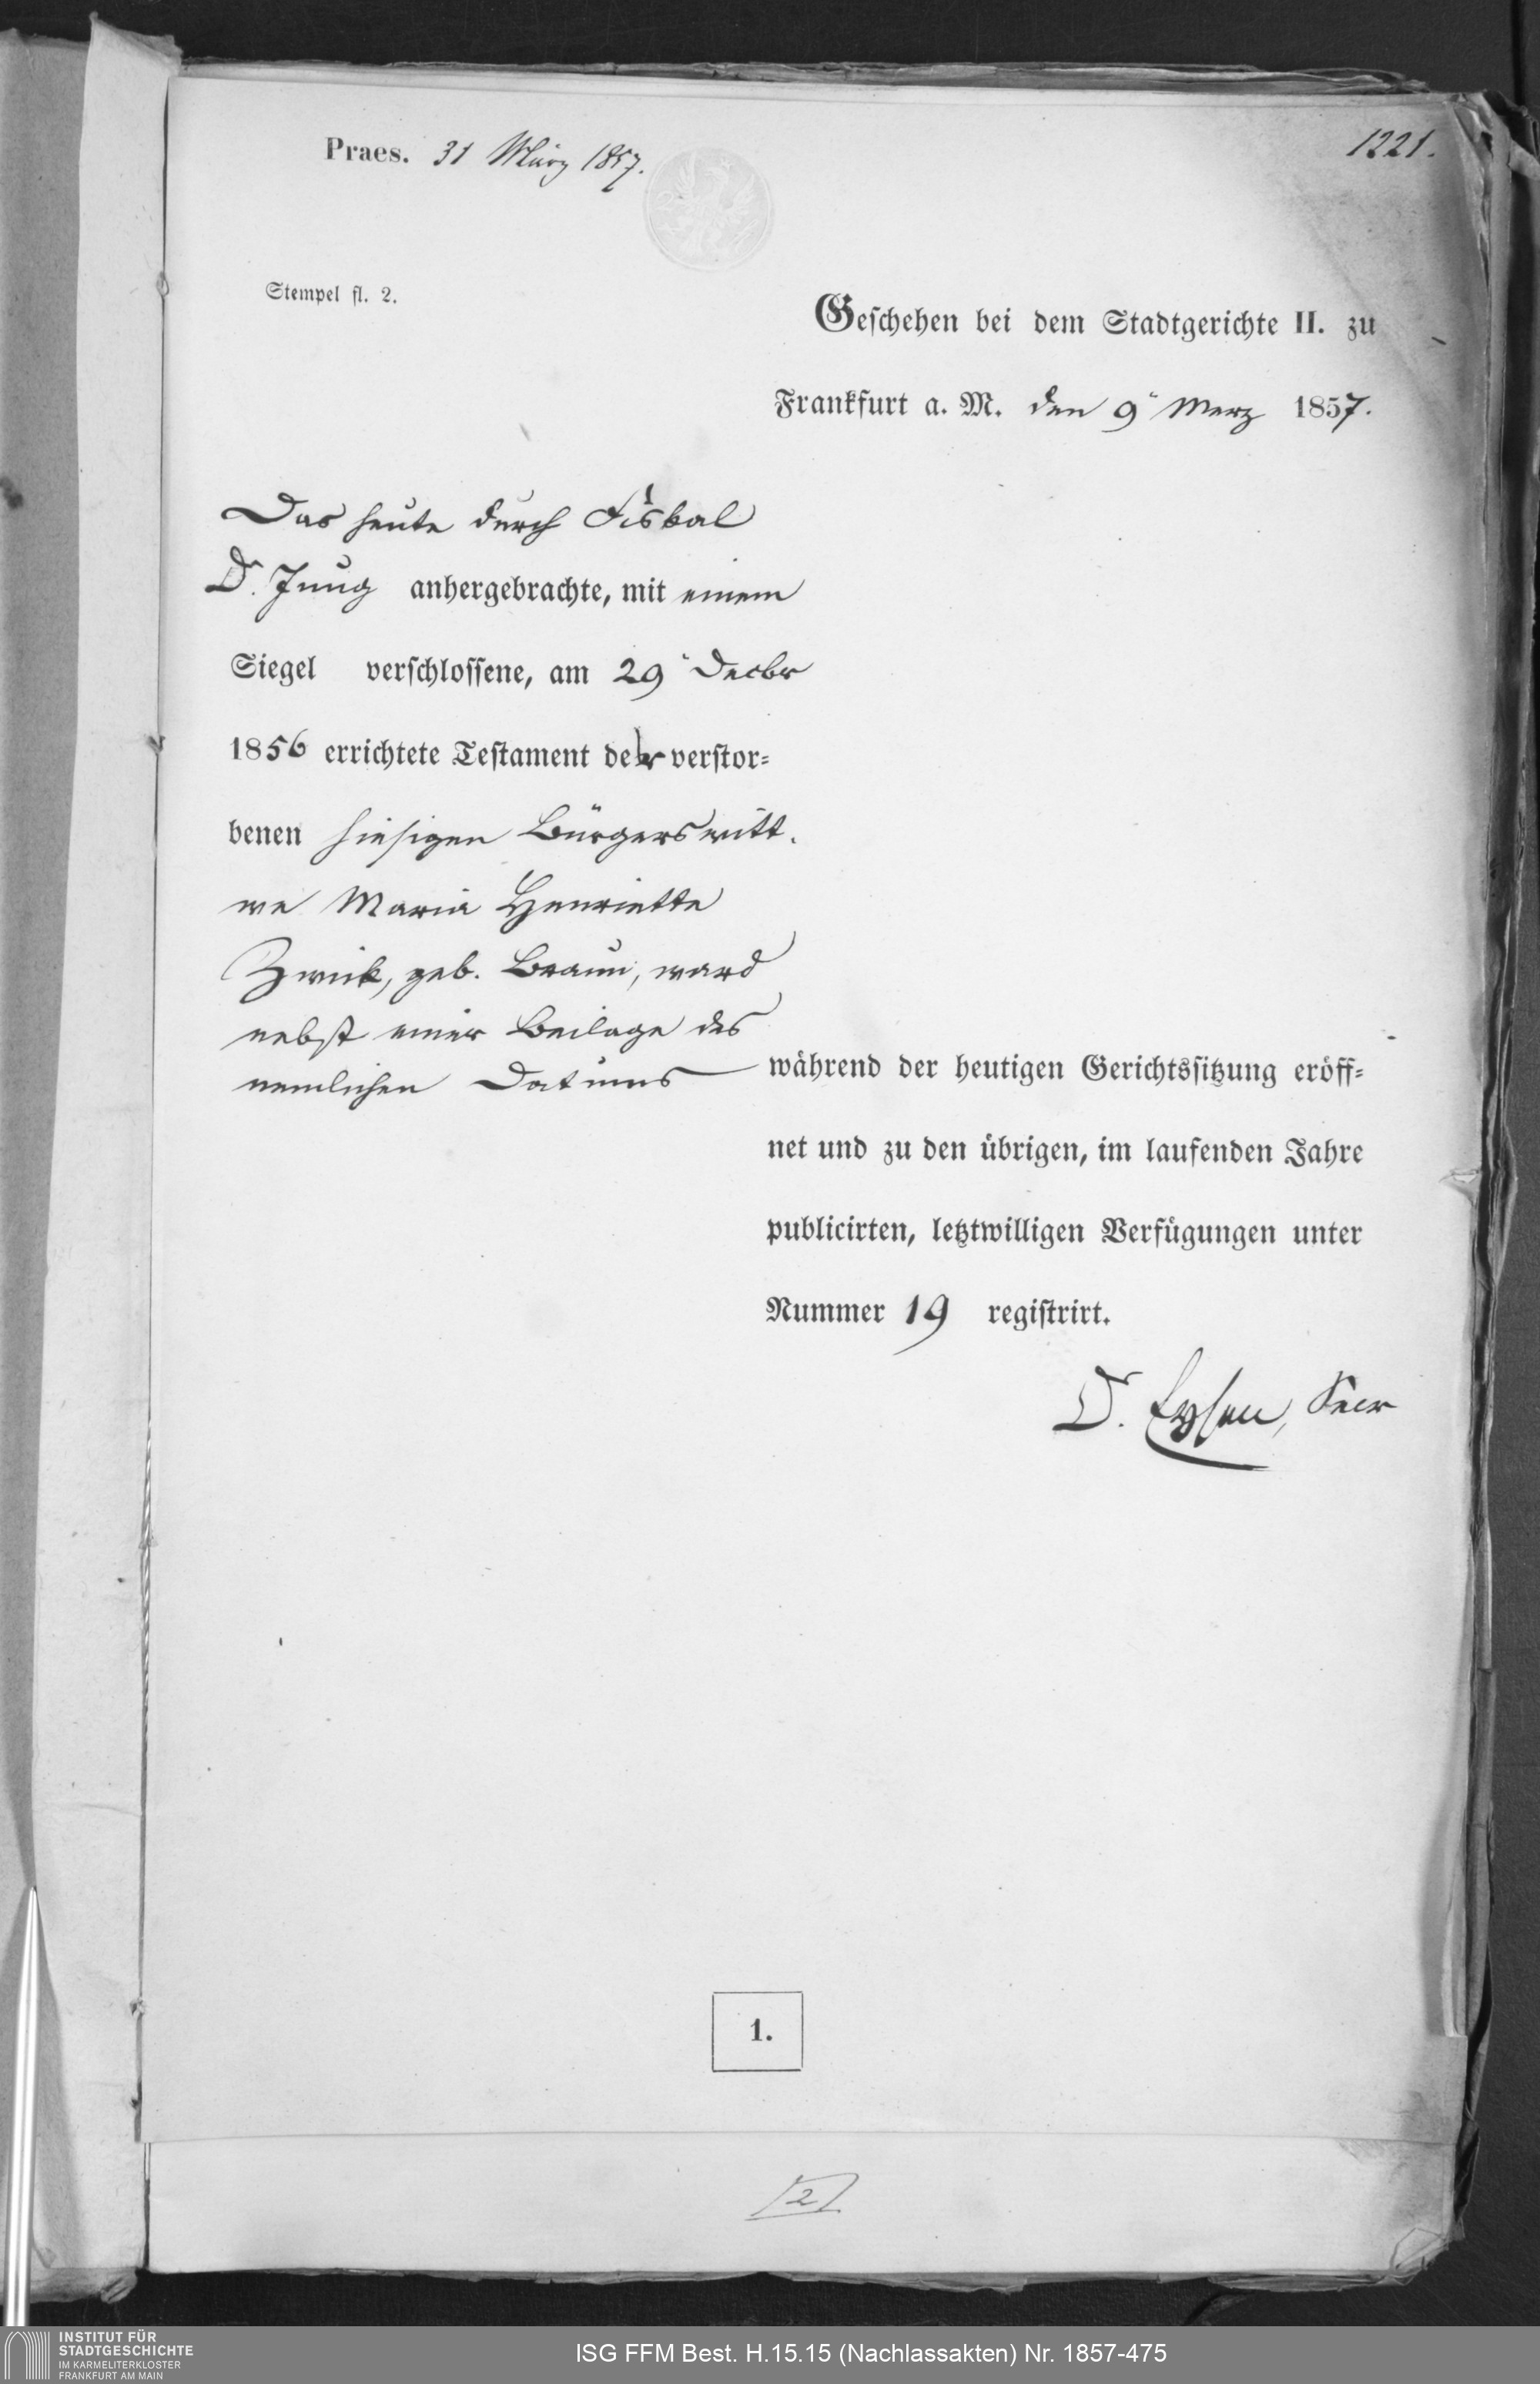 Praes. 31 März 1857.
1221.
Stempel fl. 2.
Geschehen bei dem Stadtgerichte II. zu
Frankfurt a. M. den 9 Merz 1857.
Das heute durch Fiskal
Dr. Jung anhergebrachte, mit einem
Siegel verschlossene, am 29 Decbr
1856 errichtete Testament der verstor-
benen hiesigen Bürgerswitt-
we Maria Henriette
Zwick, geb. Braun, ward
nebst einer Beilage des
nemlichen Datums
während der heutigen Gerichtssitzung eröff-
net und zu den übrigen, im laufenden Jahre
publicirten, letztwilligen Verfügungen unter
Nummer 19 registrirt.
Dr. Eysen, Secr
1.
2
INSTITUT FÜR
STADTGESCHICHTE
IM KARMELITERKLOSTER
FRANKFURT AM MAIN
ISG FFM Best. H.15.15 (Nachlassakten) Nr. 1857-475